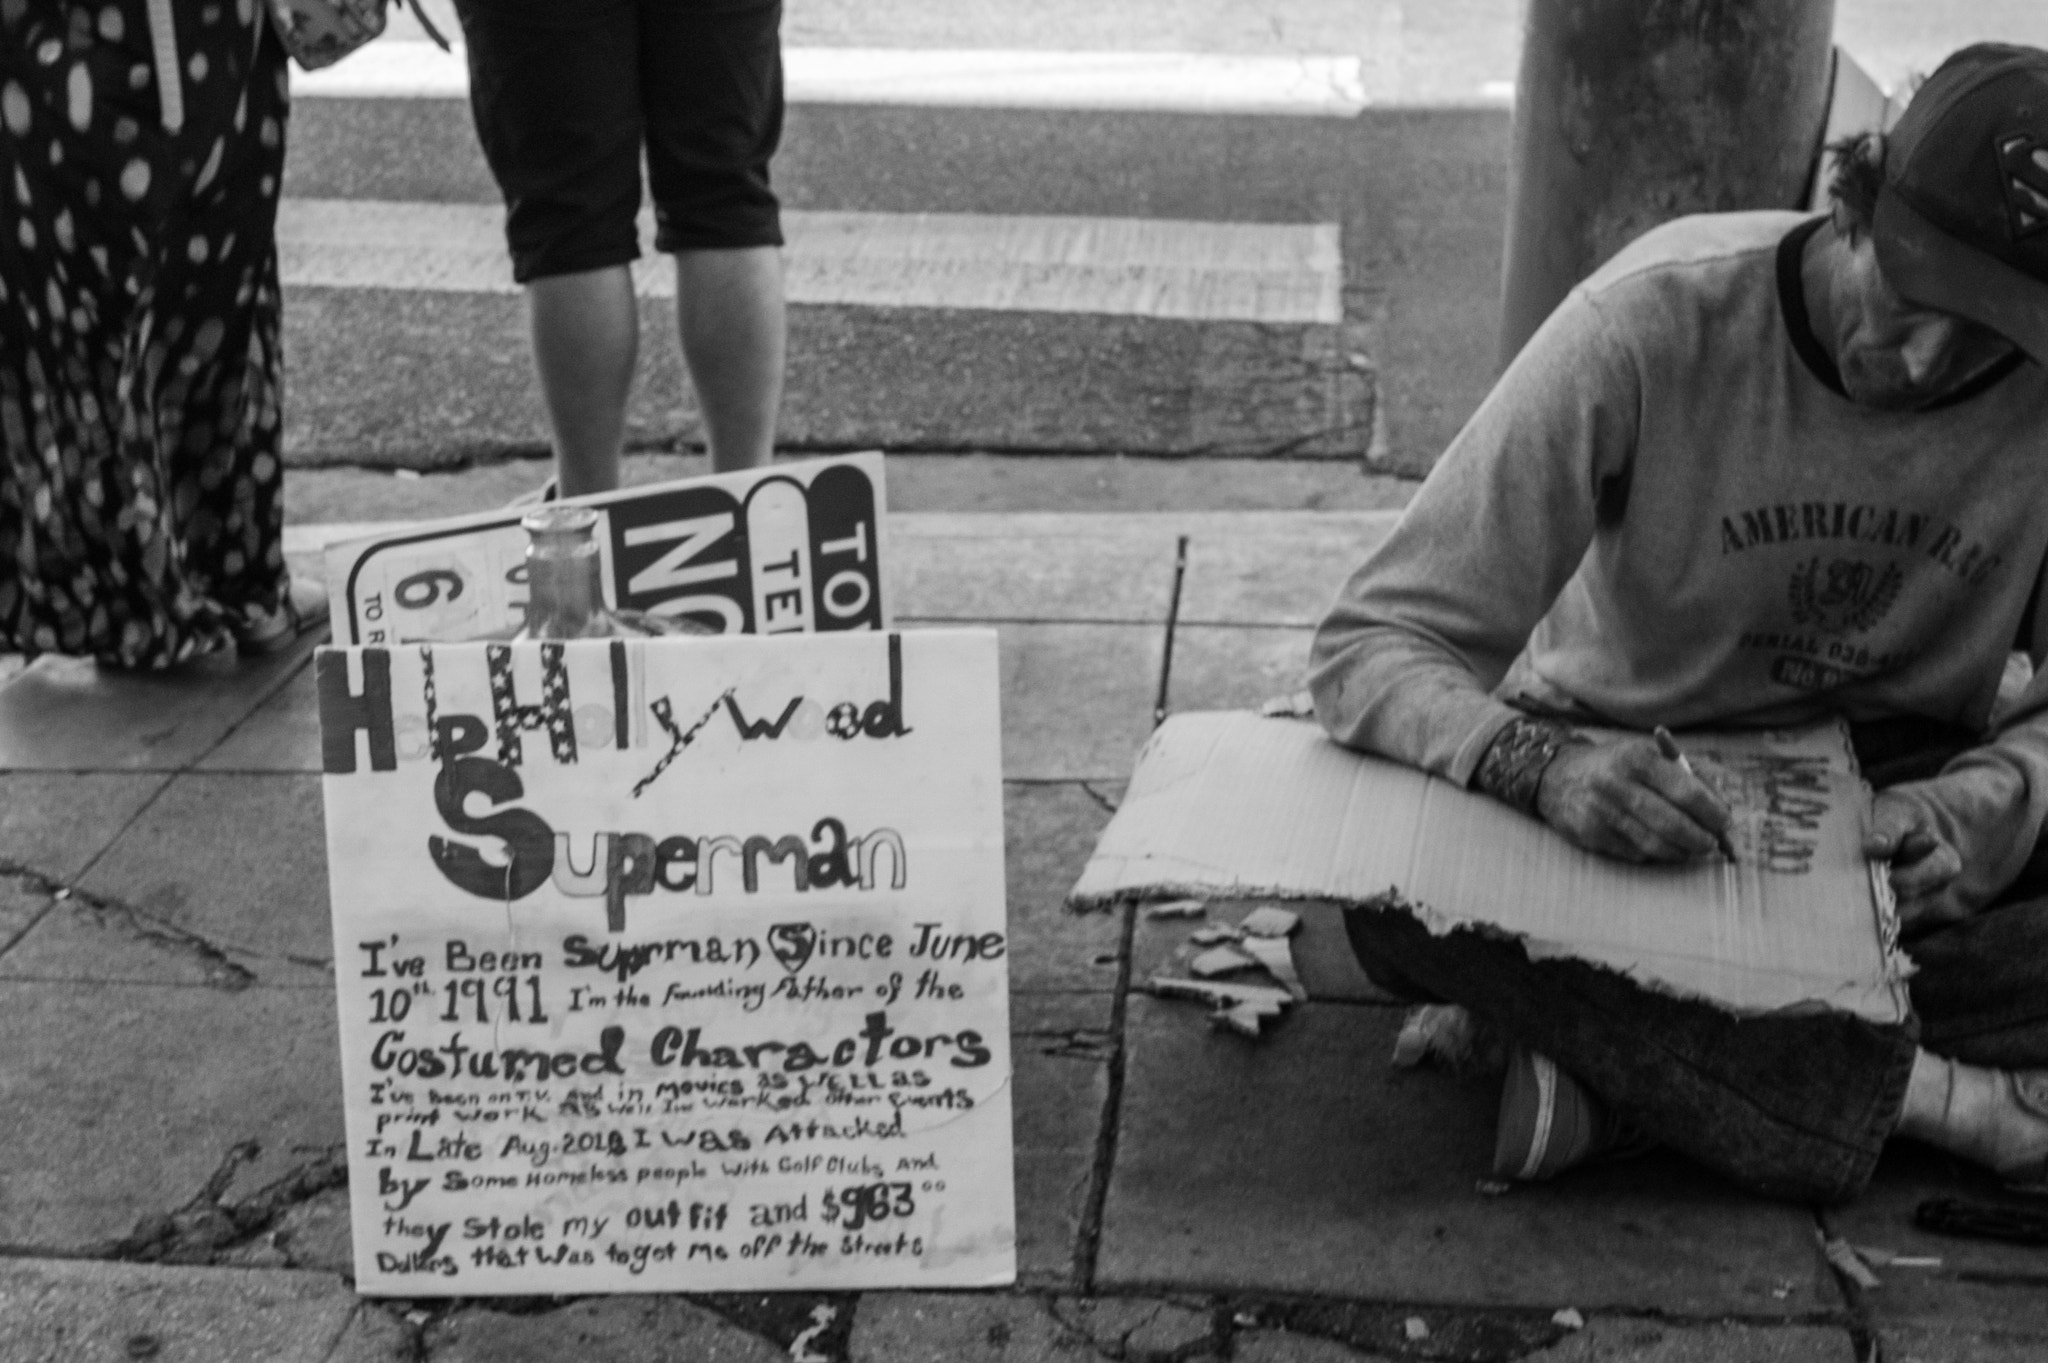 NO
TE
TO
6
TO R
Help Hollywood
Superman
I've Been Suprman Since June
10th 1991 I'm the Founding Father of the
Costumed Charactors
I've Been on T.V. And in movies as well as
print work As well I've worked other events
In Late Aug. 2018 I was Attacked
by Some Homeless people with Golf Clubs And
they Stole my outfit and $963°°
Dollars that was to get me off the streets
AMERICAN RAG
SERIAL 038-4
S